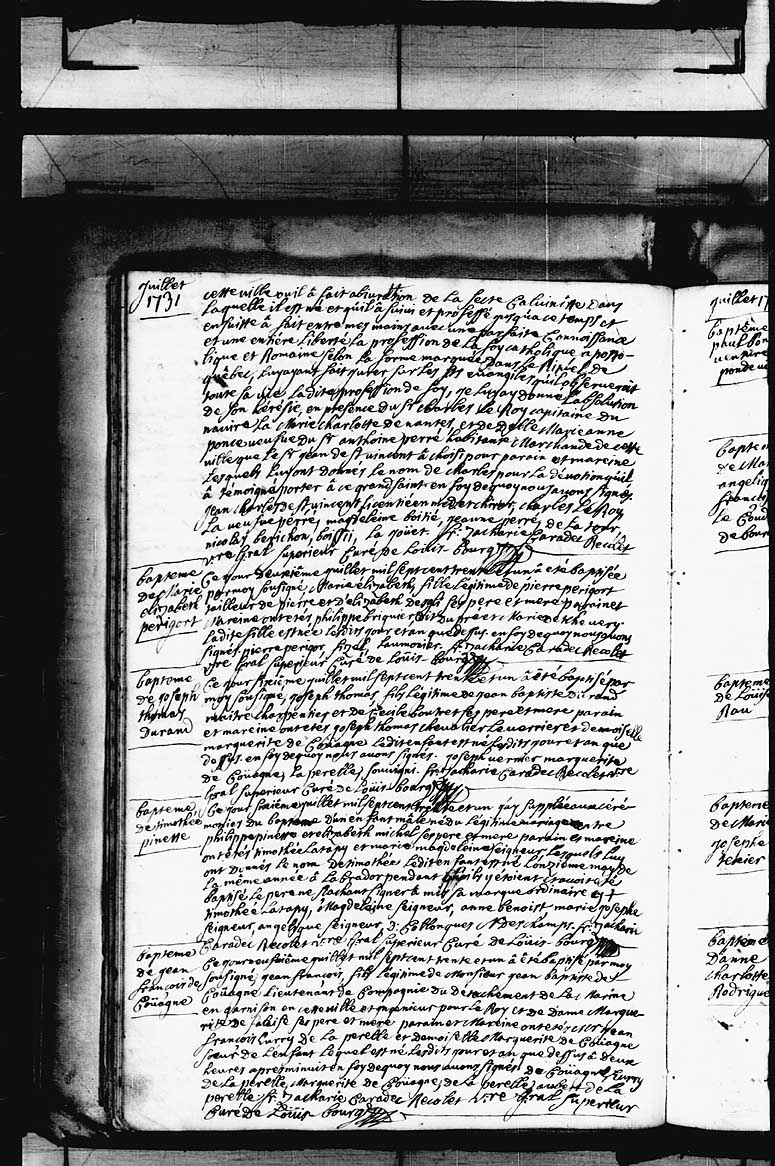 Juillet
1731
cette ville ou il à fait abiuration de la secte Caluiniste dans
laquelle il est né et quil à suiui et professé jusqu'a ce temps et
ensuitte à fait entre mes mains auec une parfaite Connoissance
et une entière liberté la profession de la foy catholique aposto-
lique et Romaine selon la forme marquée dans le Rituel de
quebec, luy ayant fait jurer sur les sts euangiles quil obserueroit
toute sa vie la ditte profession de foy, je luy ay donné l'absolution
de son hérésie, en présence du Sr charles le Roy capitaine du
nauire la Marie charlotte de nantes, et de delle Marie anne
ponce ueufue du Sr anthoine perré habitante Marchande de cette
ville que le Sr jean de st uincent à choisi pour parain et mareine
lesquels luy ont donnés le nom de charles pour la déuotion quil
à témoigné porter à ce grand saint en foy de quoy nous auons signés
jean charles de st uincent, licentié en medec chirur, charles Le Roy
La ueufue perré, magdeleine boitié, jeanne perré, de la tour
nicolas berichon, boissis, la goüet. fr. Zacharie Caradec Recolet
v.re Gñal superieur Curé de Loüis-bourg
bapteme
de Marie
elizabeth
perigort
Ce jour deuxième juillet mil sept cent trente et un à été baptisée
par moy sousigné, Marie elizabeth, fille légitime de pierre perigort
tailleur de pierre et d'elizabeth desgts ses pere et mere parain et
Mareine ont etés philippe briquier dit du pré et Marie de Kheuery
ladite fille est née lesdits jour et an que dessus. en foy de quoy nous auons
signés pierre perigor, fizel, Laumonier. fr. Zacharie Caradec Recolet
v.re Gñal superieur Curé de Loüis-bourg
bapteme
de joseph
thomas
Durand
Ce jour sixième juillet mil sept cent trente et un à été baptisé par
moy sousigné, joseph thomas fils légitime de jean baptiste Durand
maitre charpentier et de Cecile boutret ses pere et mere parain
et mareine ont etés joseph thomas cheualier le uerrier et demoiselle
marguerite de Coüagne ledit enfant est né lesdits jour et an que
dessus. en foy de quoy nous auons signés. joseph uerrier marguerite
de Coüagne, la perelle, souuigni. fr. Zacharie Caradec Recolet v.re
Gñal superieur Curé de Loüis-bourg
bapteme
de timothée
pinette
Ce jour sixième juillet mil sept cent trente et un j'ay suppléé aux céré-
monies du bapteme d'un enfant mâle né du légitime mariage entre
philippe pinette et elizabeth michel ses pere et mere parain et mareine
ont étés timothée Latapy et marie magdeleine seigneur lesquels luy
ont donnés le nom de timothée ledit enfant est né l'onzième may de
la même année à labrador pendant quils y etoient et auoit été
baptisé le pere ne sçachant signer à mis sa marque ordinaire +
timothée Latapy, Magdeleine seigneur, anne benoist marie josephe
seigneur, angelique seigneur, D: Collongues N Deschamps. fr. Zacharie
Caradec Recolet v.re Gñal superieur Curé de Loüis-bourg
bapteme
de jean
francois de
Coüagne
Ce jour neufième juillet mil sept cent trente et un à été baptisé par moy
sousigné, jean francois, fils légitime de Monsieur jean baptiste de
Coüagne lieutenant de Compagnie du détachement de la Marine
en garnison en cette ville et ingénieur pour le Roy et de Dame Margue-
rite de Galaise ses pere et mere parain et Mareine ont etés Mr jean
francois Curry de la perelle et demoiselle Marguerite de Coüagne
soeur de l'enfant lequel est né lesdits jour et an que dessus à deux
heures apres minuit en foy de quoy nous auons signés de Coüagne, Curry
de la perelle, Marguerite de Coüagne, de la perelle, aubert de la
perelle, fr. Zacharie Caradec Recolet v.re Gñal superieur
Curé de Loüis-bourg
juillet 17
bapteme
paul
bapteme
de Mar
angeliq
francoi
Le Coud
de bour
bapteme
de Loüis
Rau
bapteme
de Marie
josephe
tekier
bapteme
Danne
charlotte
Rodrigue